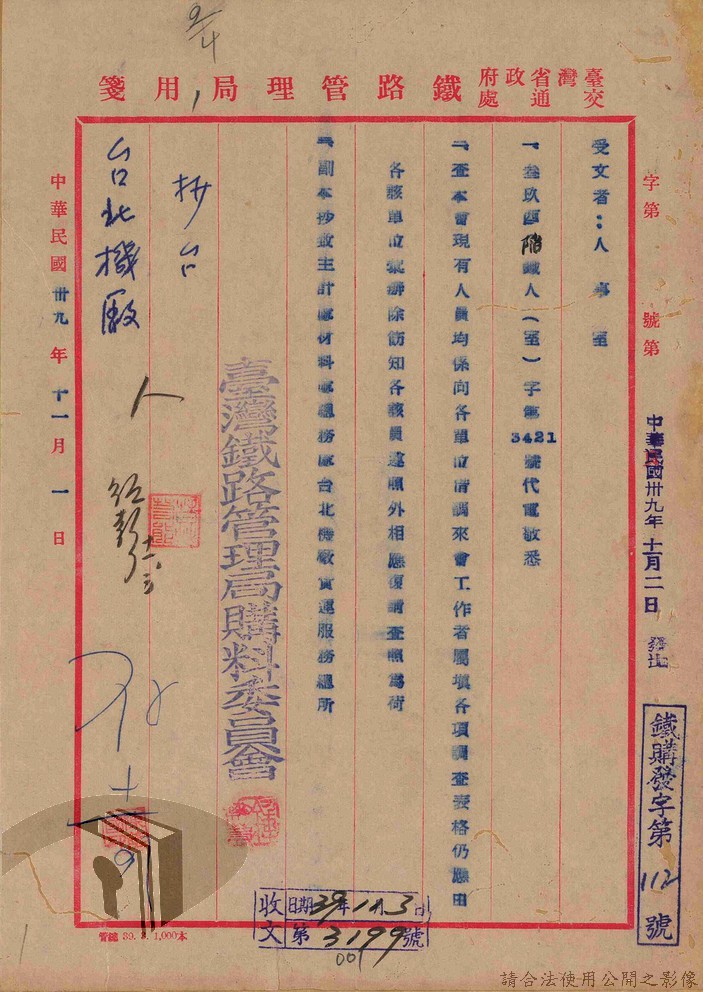 臺灣省政府
交通處
鐵路管理局用箋
字第 號第
中華民國卅九年十一月二日 發出
鐵購發字第112號
受文者:人事室
一、叁玖酉陷鐵人(室)字第3421號代電敬悉
一、查本會現有人員均係向各單位借調來會工作者屬填各項調查表格仍應由
各該單位彙辦除飭知各該員遵照外相應復請查照為荷
一、副本抄致主計處材料處總務處台北機廠貨運服務總所
臺灣鐵路管理局購料委員會
抄台
台北機廠
人
中華民國卅九年十一月一日
收文
日期39年11月3日
第3199號
001
管總 39. 3. 1,000本
請合法使用公開之影像